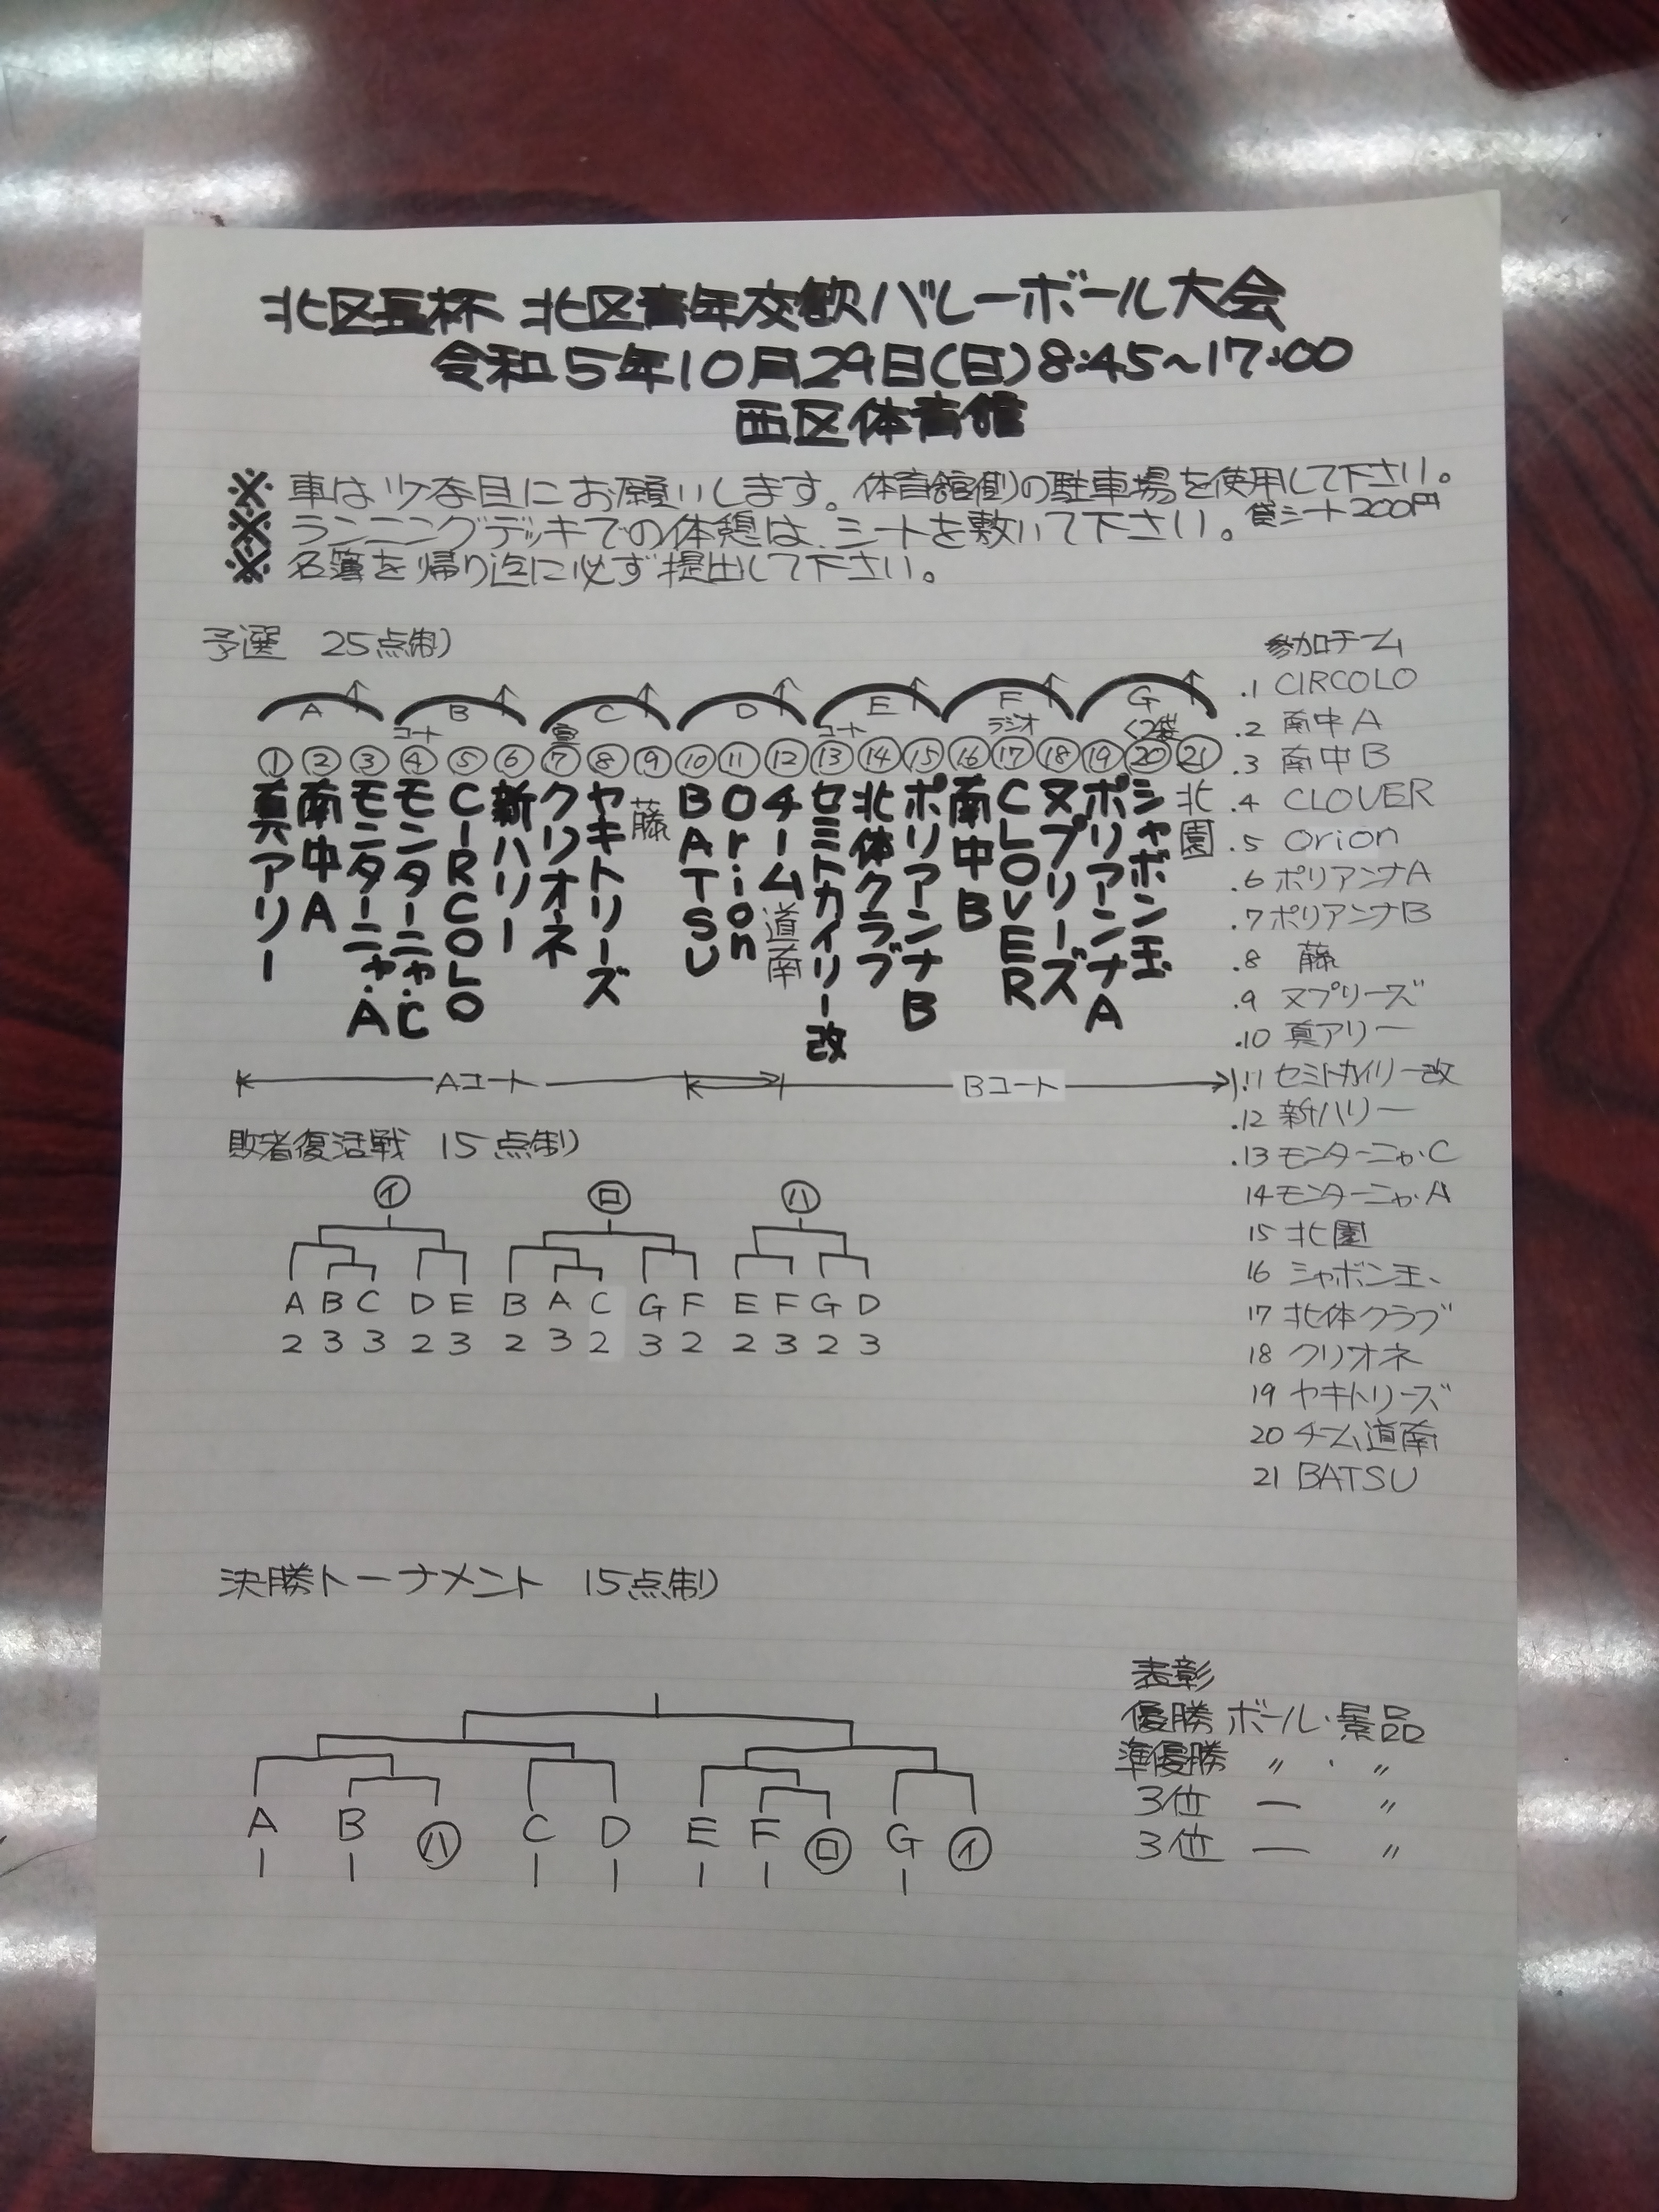 北区長杯 北区青年交歓バレーボール大会
令和5年10月29日(日)8:45~17:00
西区体育館
※ 車は少な目にお願いします。体育館側の駐車場を使用して下さい。
※ ランニングデッキでの休憩は、シートを敷いて下さい。貸シート200円
※ 名簿を帰り迄に必ず提出して下さい。
予選 25点制)
A B C D E F G
コート コート ラジオ
① ② ③ ④ ⑤ ⑥ ⑦ ⑧ ⑨ ⑩ ⑪ ⑫ ⑬ ⑭ ⑮ ⑯ ⑰ ⑱ ⑲ ⑳ ㉑
真アリー
南中A
モンターニャ.A
モンターニャ.C
CIRCOLO
新ハリー
クリオネ
ヤキトリーズ
藤
BATSU
Orion
チーム道南
セミトカイリー改
北体クラブ
ポリアンナB
南中B
CLOVER
ヌプリーズ
ポリアンナA
シャボン玉
北園
Aコート Bコート
参加チーム
.1 CIRCOLO
.2 南中A
.3 南中B
.4 CLOVER
.5 Orion
.6 ポリアンナA
.7 ポリアンナB
.8 藤
.9 ヌプリーズ
.10 真アリー
.11 セミトカイリー改
.12 新ハリー
.13 モンターニャ.C
14 モンターニャ.A
15 北園
16 シャボン玉、
17 北体クラブ
18 クリオネ
19 ヤキトリーズ
20 チーム道南
21 BATSU
敗者復活戦 15点制)
㋑ ㋺ ㋩
A B C D E B A C G F E F G D
2 3 3 2 3 2 3 2 3 2 2 3 2 3
決勝トーナメント 15点制)
A B ㋩ C D E F ㋺ G ㋑
1 1 1 1 1 1 1
表彰
優勝 ボール・景品
準優勝 〃 ・ 〃
3位 ー 〃
3位 ー 〃